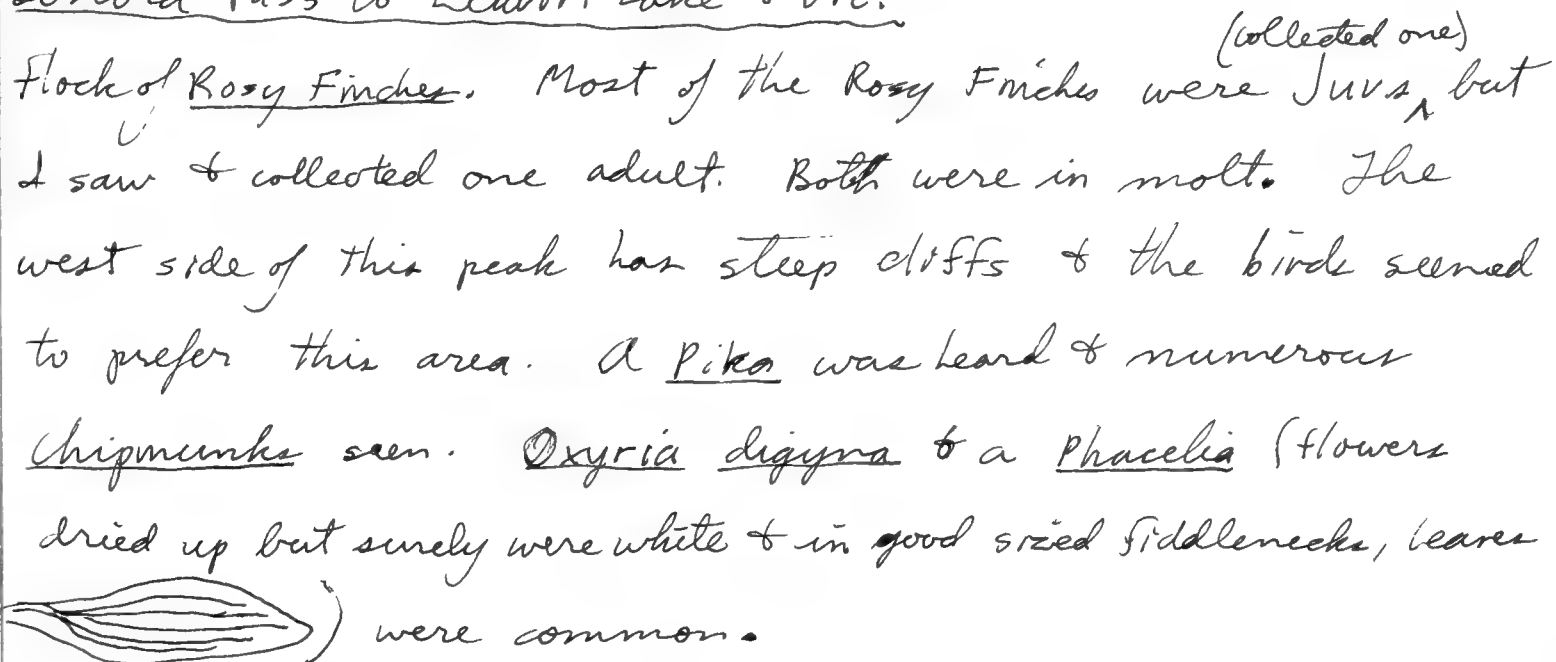 Pass to
flock of Rosy Finches. Most of the Rosy Finches were Juvs (collected one) but
I saw & collected one adult. Both were in molt. The
west side of this peak has steep cliffs & the birds seemed
to prefer this area. A Pika was heard & numerous
chipmunks seen. Oxyria digyna & a Phacelia (flowers
dried up but surely were white & in good sized fiddlenecks, leaves
) were common.